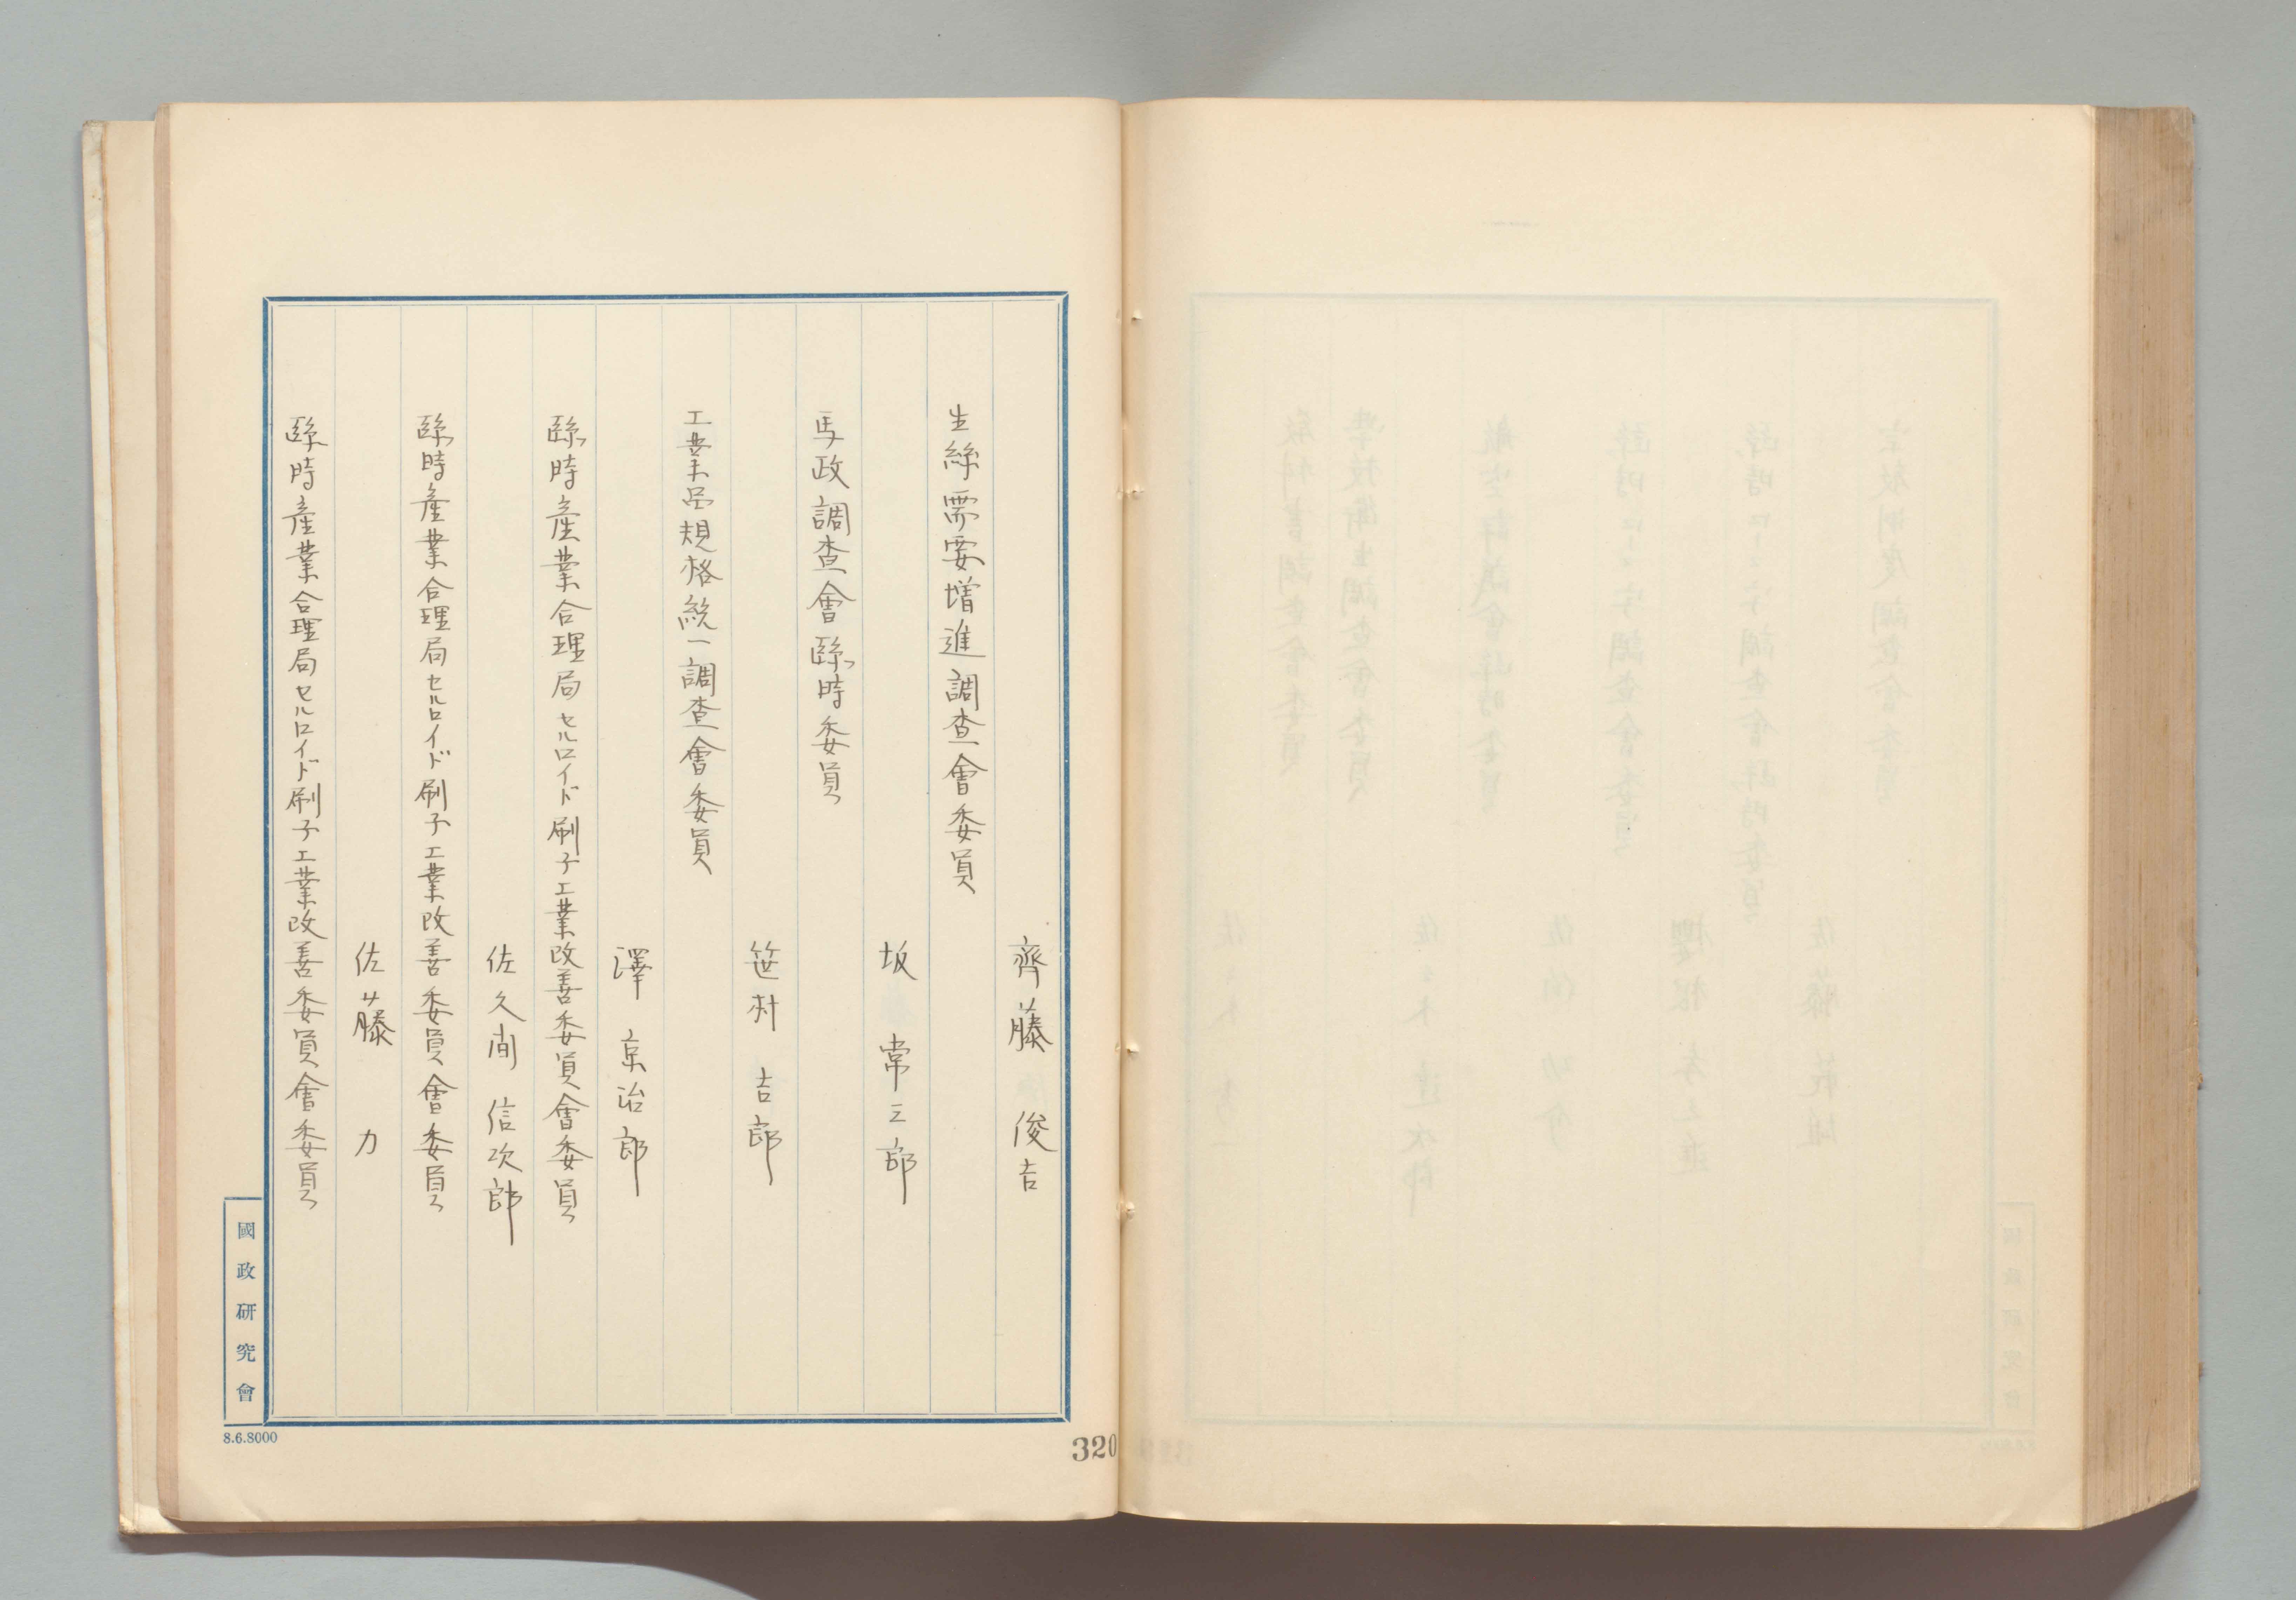 齊藤 俊吉
生絲需要増進調査會委員
坂 常三郎
馬政調査會臨時委員
笹村 吉郎
工業品規格統一調査會委員
澤 京治郎
臨時産業合理局セルロイド刷子工業改善委員會委員
佐久间 信次郎
臨時産業合理局セルロイド刷子工業改善委員會委員
佐藤 力
臨時産業合理局セルロイド刷子工業改善委員會委員
國政研究會
8.6.8000
320